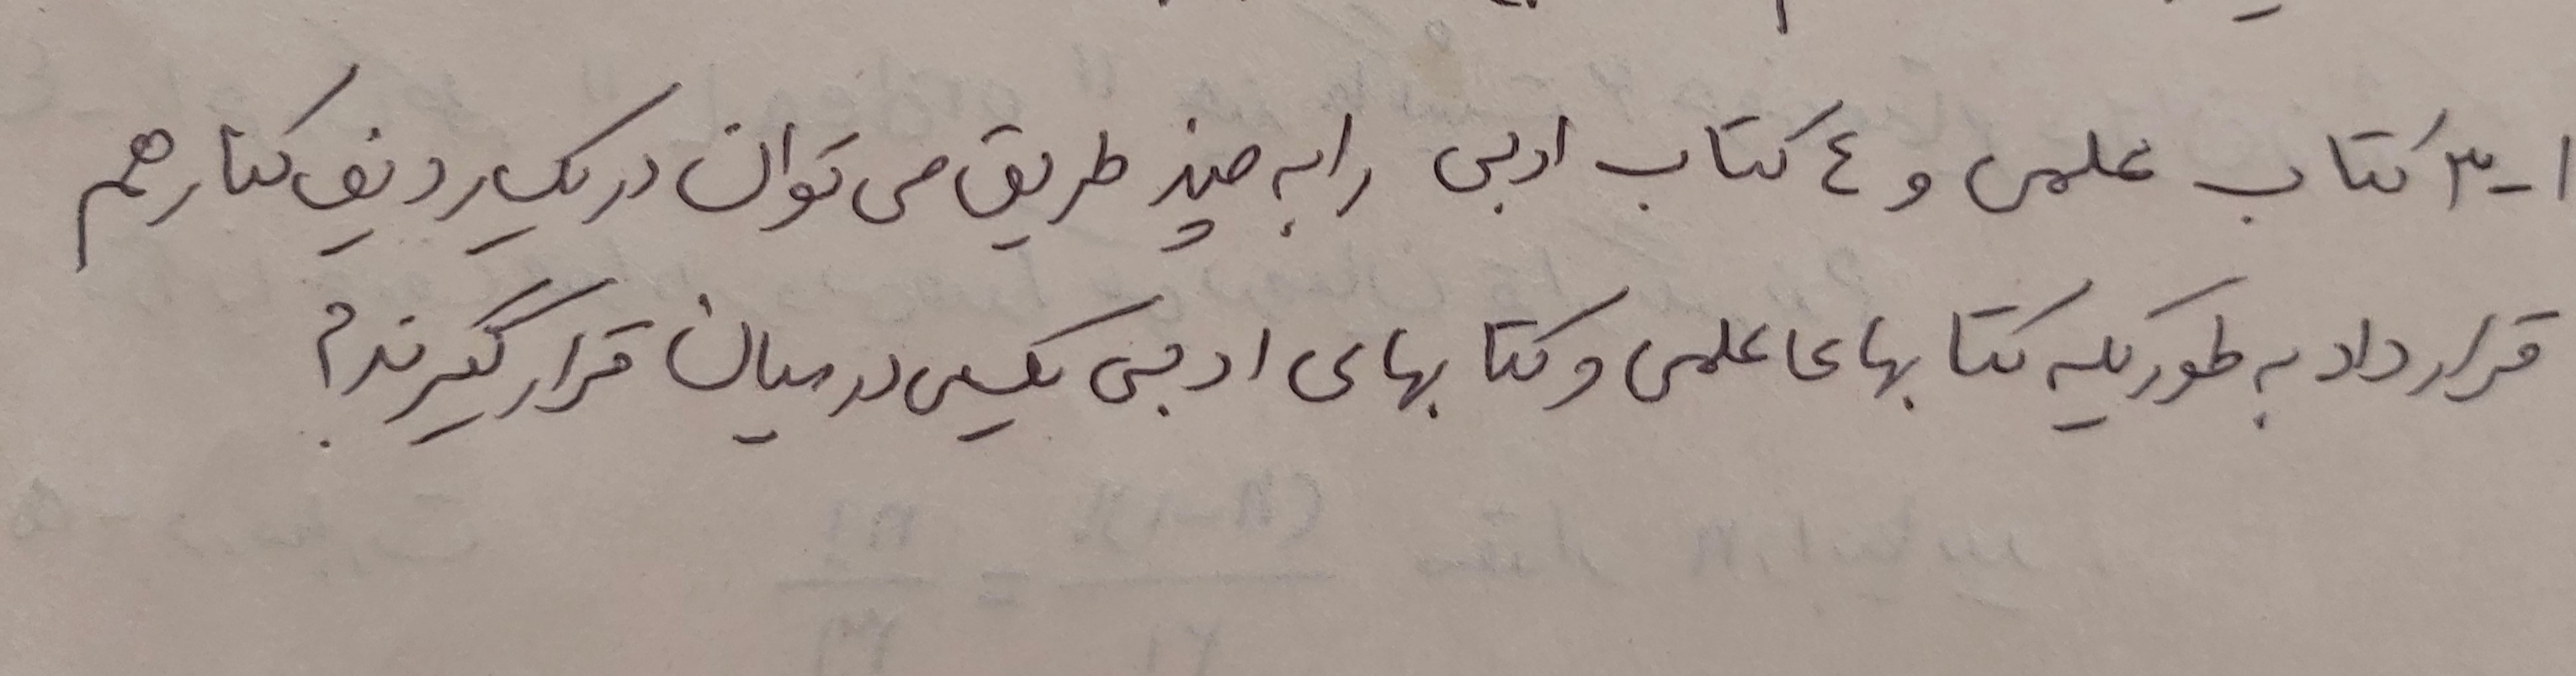 ۱-۳ کتاب علمی و ٤ کتاب ادبی را به چند طریق می توان در یک ردیف کنار هم
قرار داد به طوریکه کتابهای علمی و کتابهای ادبی یکی در میان قرار گیرند؟